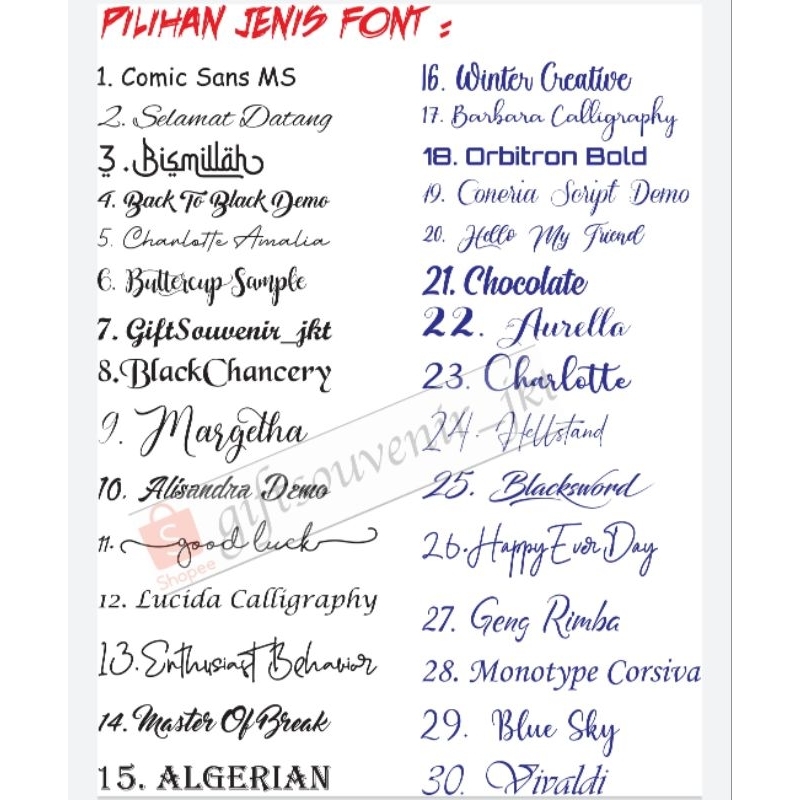 PILIHAN JENIS FONT :
1. Comic Sans MS
2. Selamat Datang
3. Bismillah
4. Back To Black Demo
5. Charlotte Amalia
6. Buttercup Sample
7. GiftSouvenir_jkt
8. BlackChancery
9. Margetha
10. Alisandra Demo
11. good luck
12. Lucida Calligraphy
13. Enthusiast Behavior
14. Master Of Break
15. ALGERIAN
16. Winter Creative
17. Barbara Calligraphy
18. Orbitron Bold
19. Coneria Script Demo
20. Hello My Friend
21. Chocolate
22. Aurella
23. Charlotte
24. Hellstand
25. Blacksword
26. Happy Ever Day
27. Geng Rimba
28. Monotype Corsiva
29. Blue Sky
30. Vivaldi
Shopee
giftsouvenir_jkt